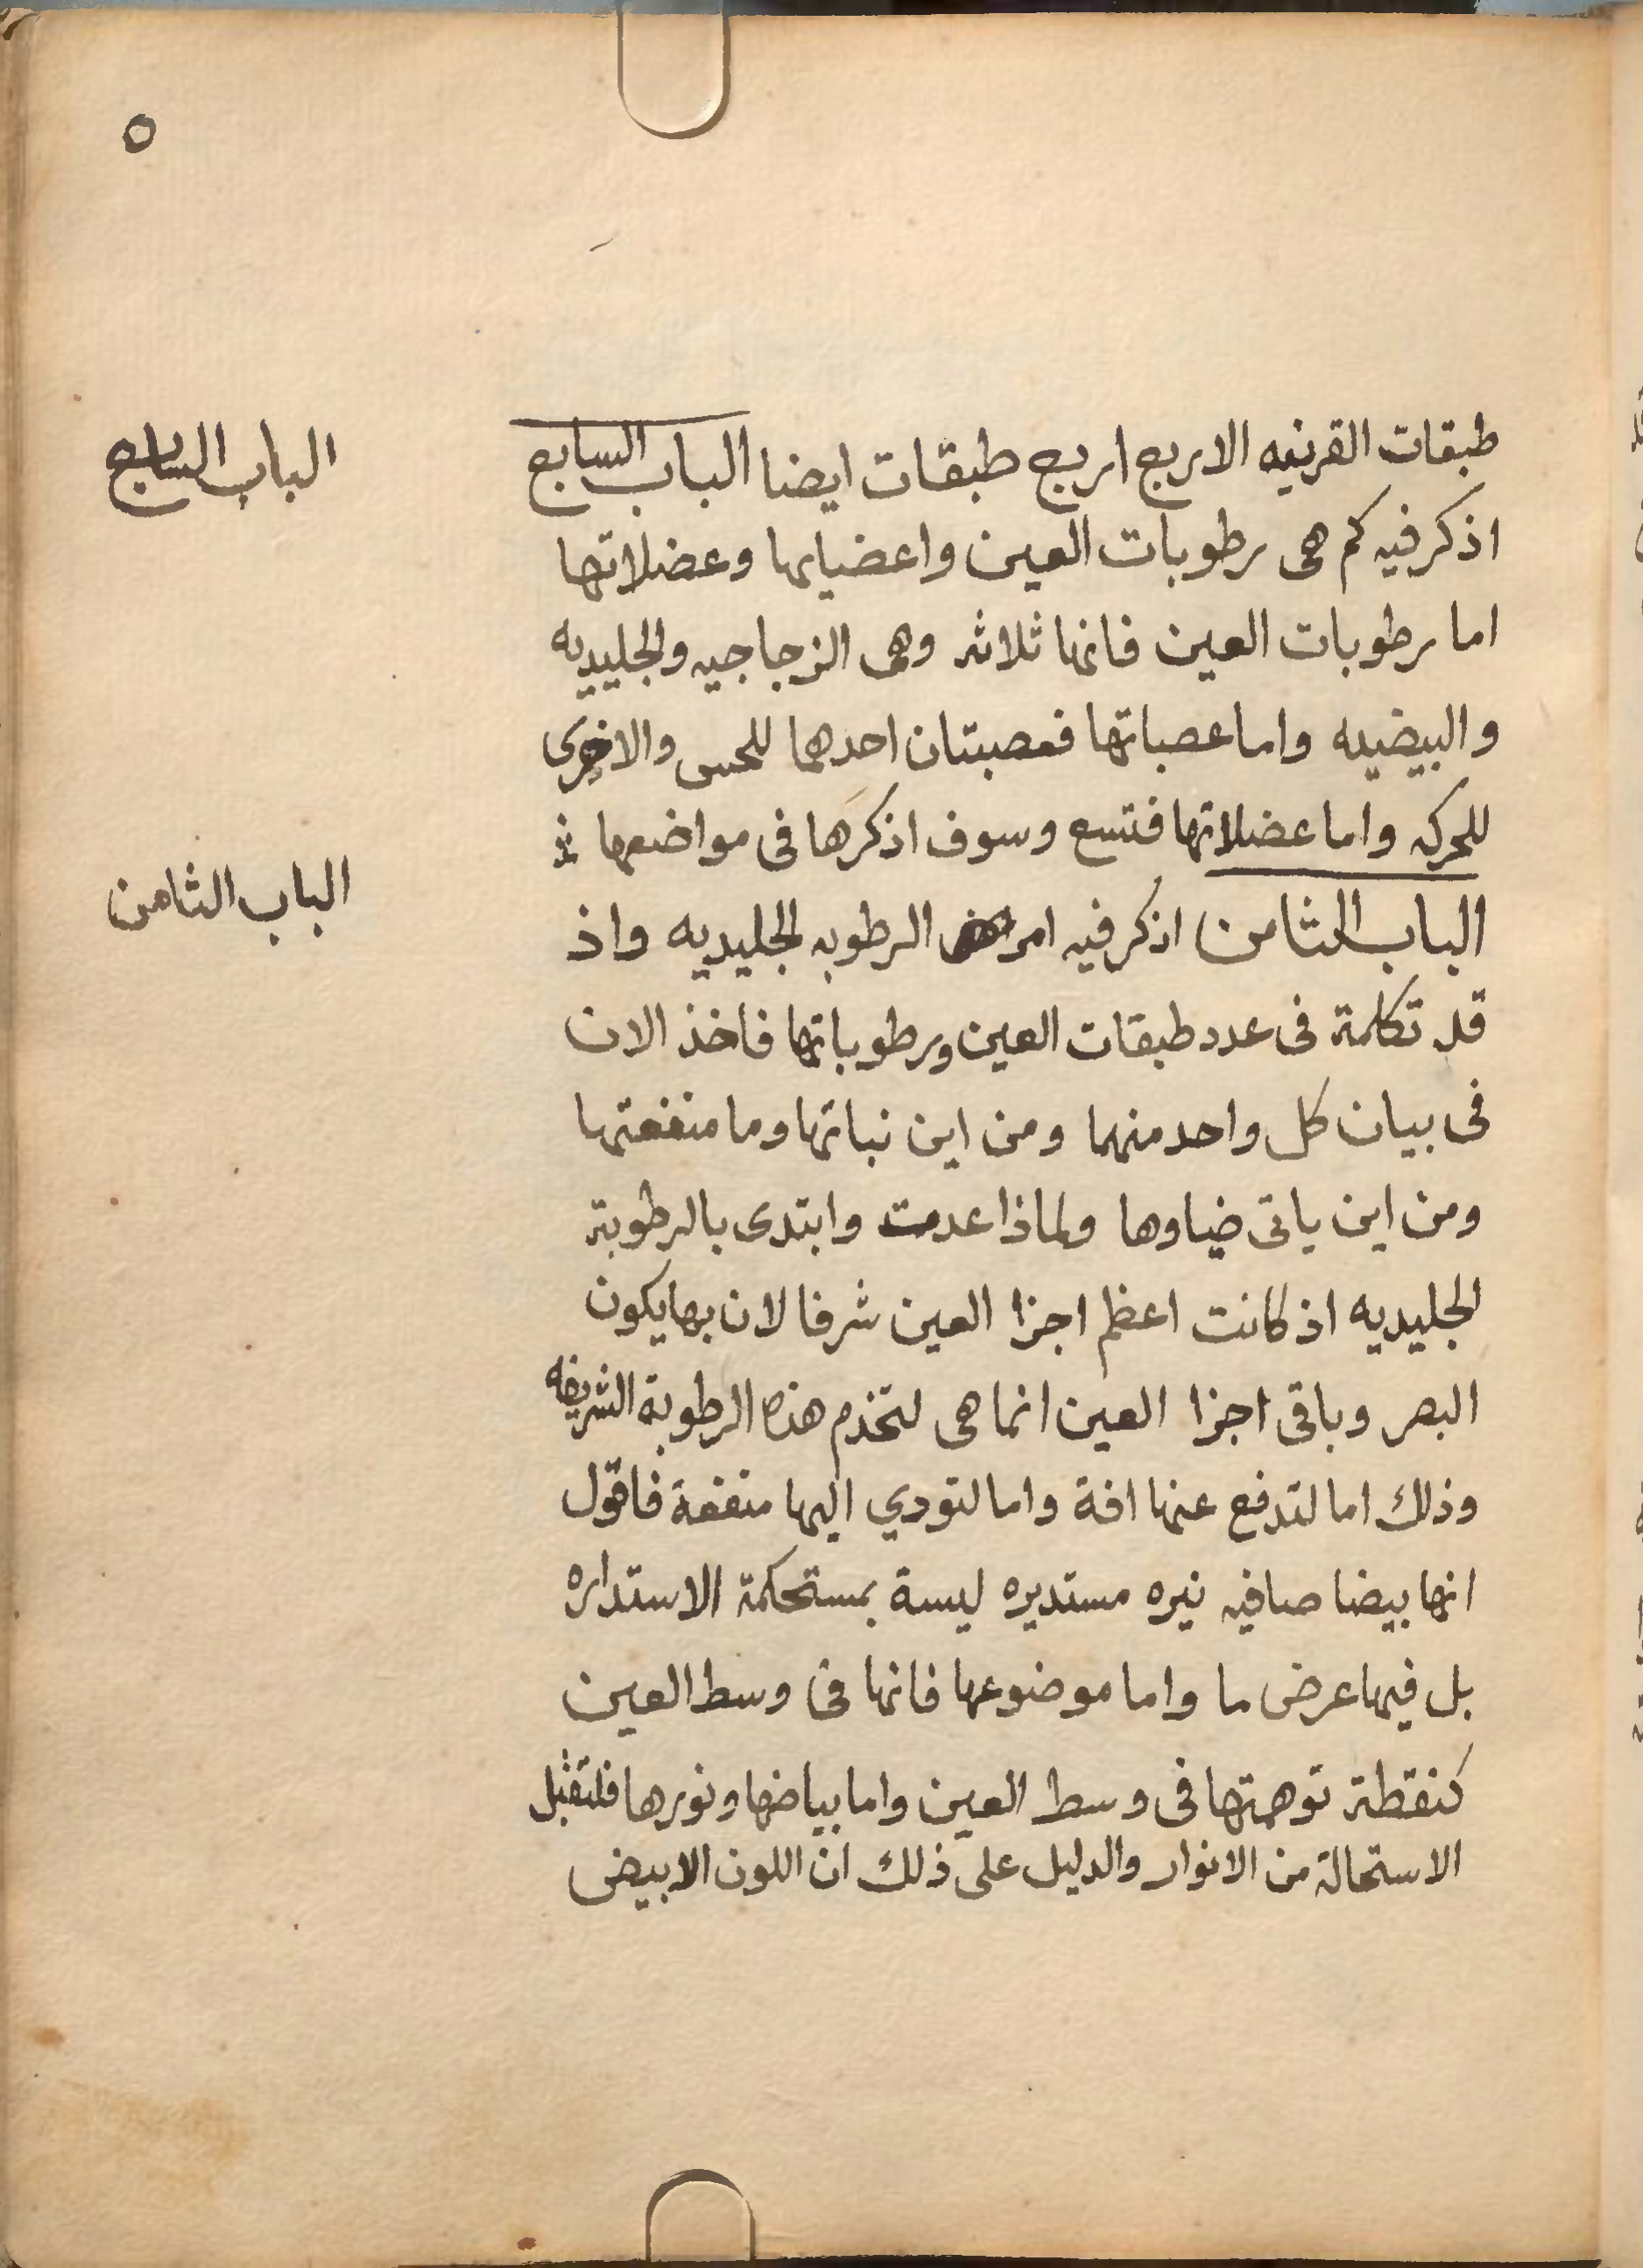 ٥
طبقات القرنيه الاربع اربع طبقات ايضا الباب السابع
الباب السابع
اذكر فيه كم هى رطوبات العين واعضايها وعضلاتها
اما رطوبات العين فانها ثلاثه وهى الزجاجيه والجليديه
والبيضيه واما عصباتها فعصبتان احدهما للحس والاخرى
للحركه واما عضلاتها فتسع وسوف اذكرها فى مواضعها
الباب الثامن
الباب الثامن اذكر فيه امراض الرطوبه الجليديه واذ
قد تكلمة فى عدد طبقات العين ورطوباتها فاخذ الان
فى بيان كل واحد منهما ومن اين نباتها وما منفعتها
ومن اين ياتى ضياوها ولماذا عدمت وابتدى بالرطوبة
الجليديه اذ كانت اعظم اجزا العين شرفا لان بها يكون
البصر وباقى اجزا العين انما هى لتخذم هذه الرطوبة الشريفه
وذلك اما لتدفع عنها افة واما لتودي اليها منفعة فاقول
انها بيضا صافيه نيره مستديره ليسة بمستحكمة الاستداره
بل فيها عرض ما واما موضوعها فانها فى وسط العين
كنقطة توهمتها فى وسط العين واما بياضها ونورها فلتقبل
الاستحالة من الانوار والدليل على ذلك ان اللون الابيض